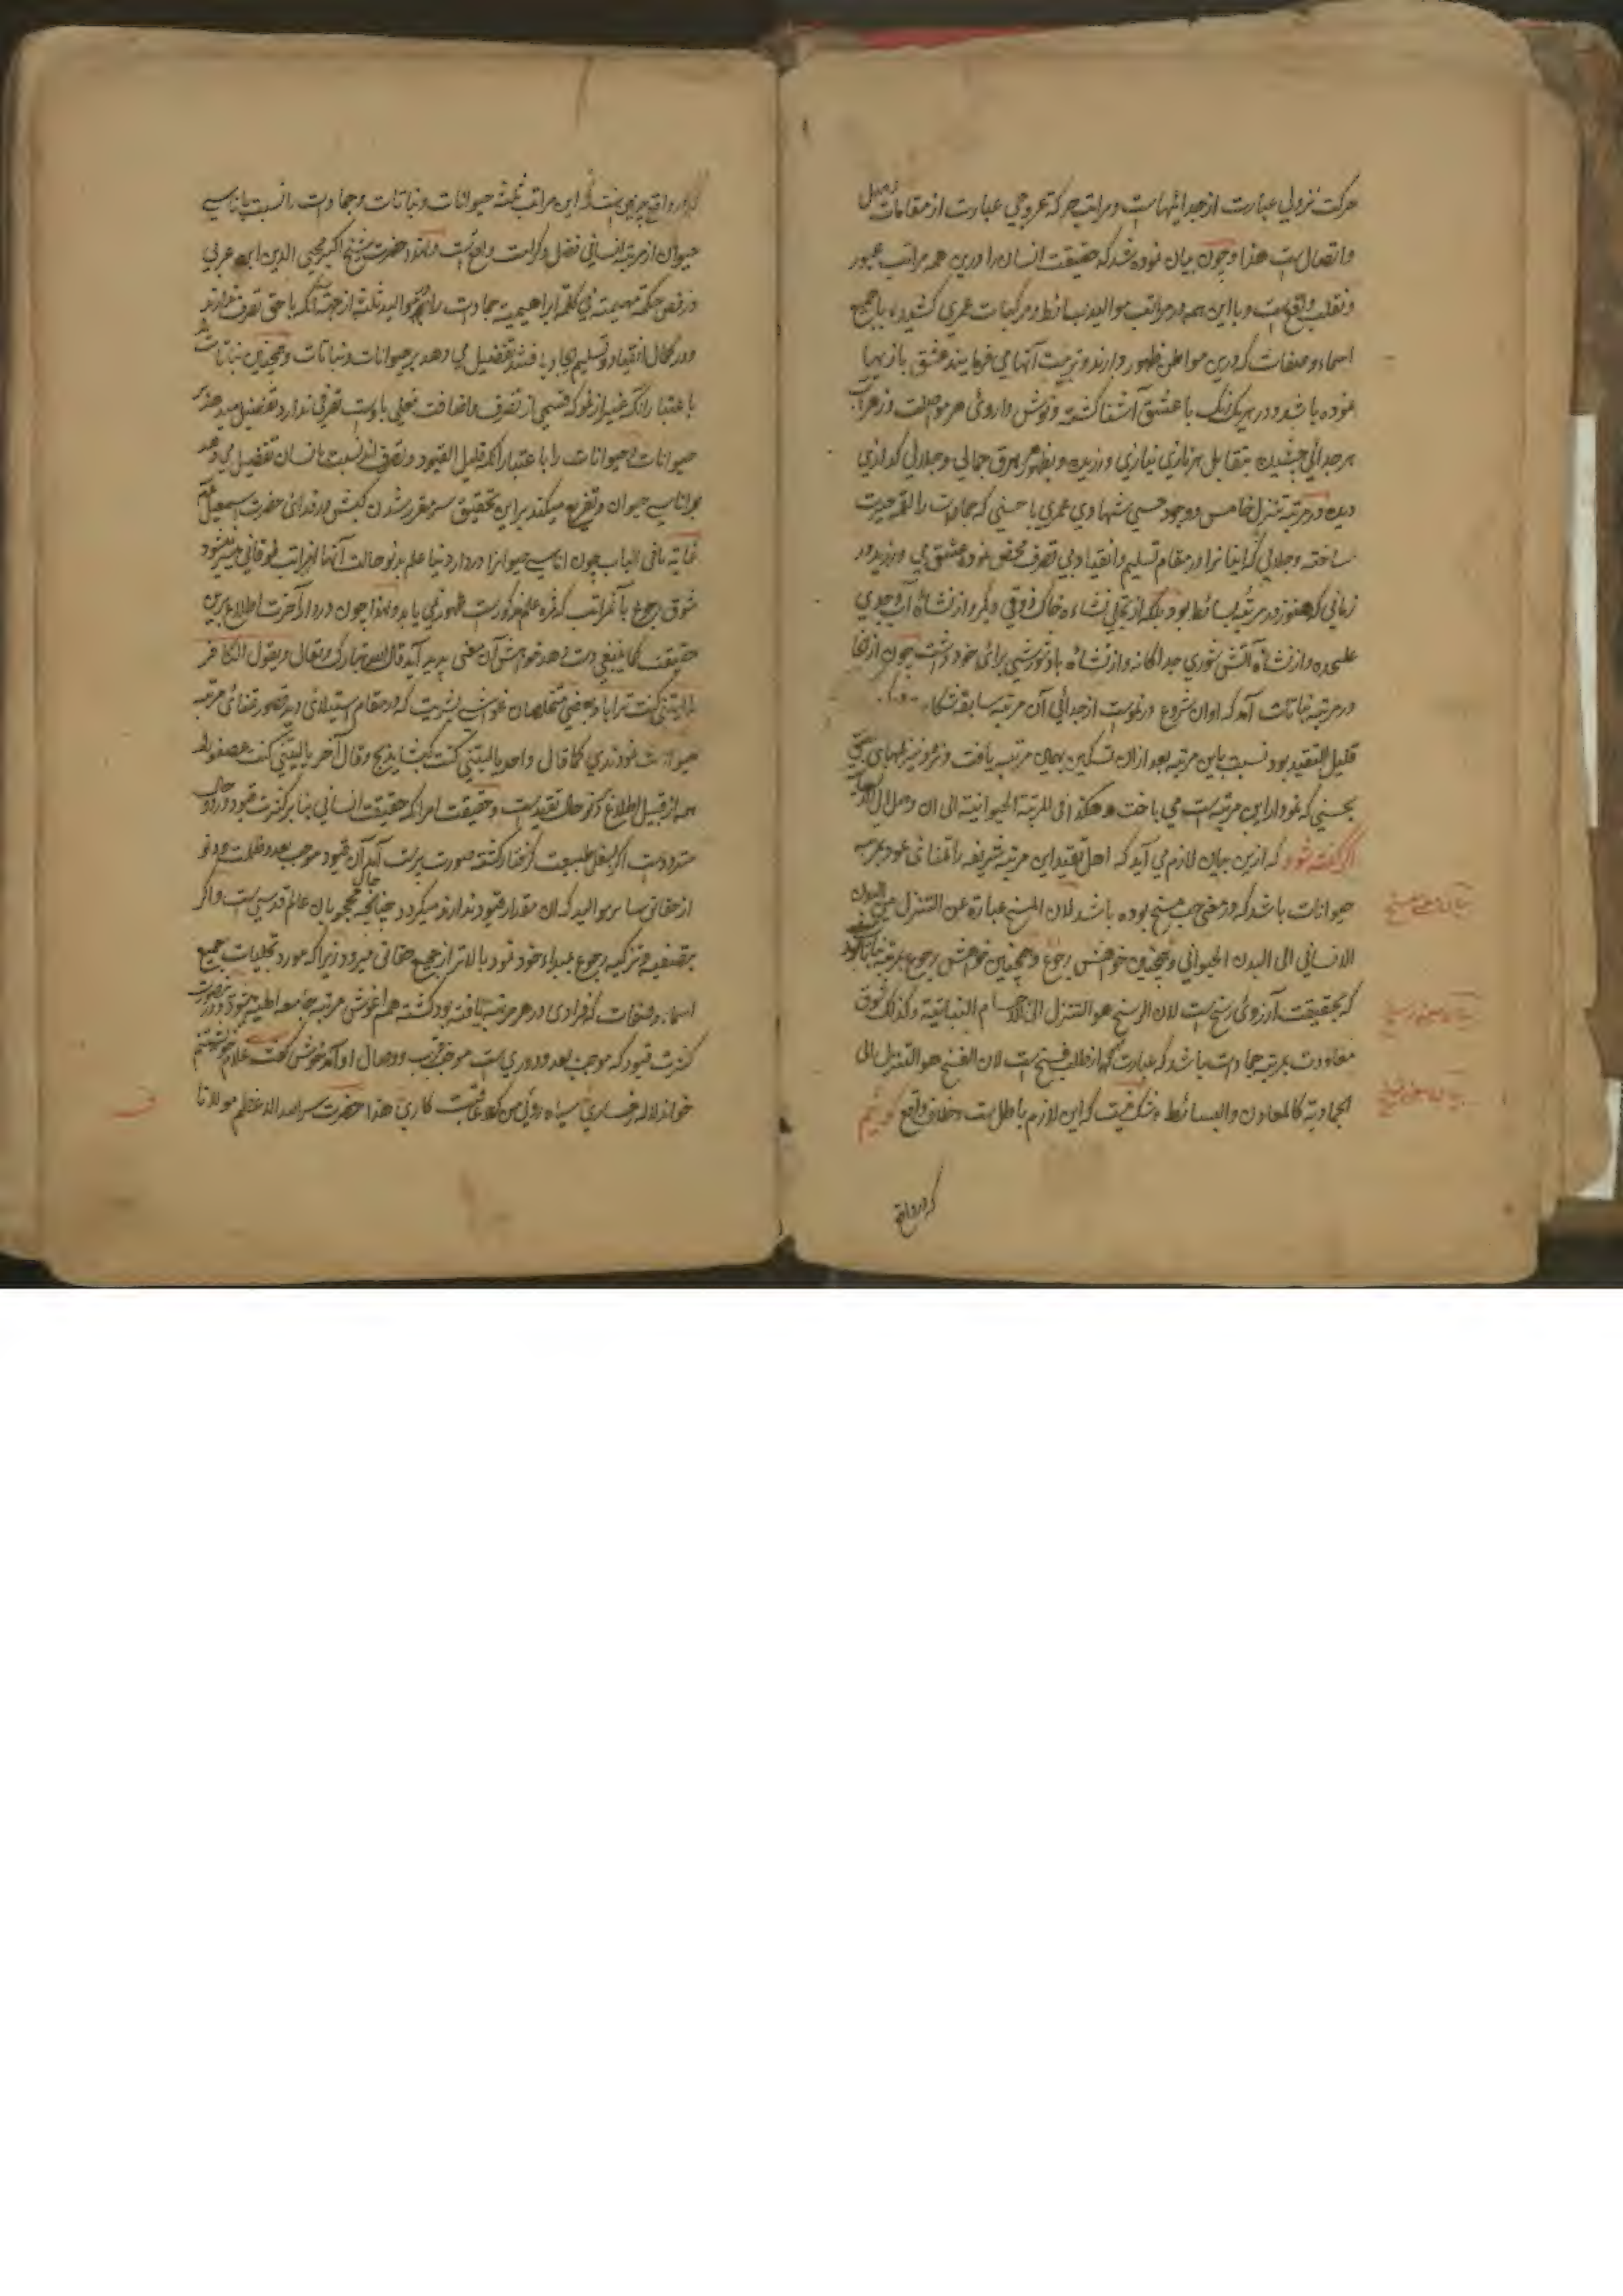 حرکت نزولی عبارت از جدائیهاست و مراتب حرکة عروجی عبارت از مقامات
واتصال است هذا و چون بیان نموده شد که حقیقت انسان را درین همه مراتب عبور
و تقلب واقع است و با این همه در مراتب موالید بسائط و مرکبات عمری کشیده با جمیع
اسماء و صفات که درین مواطن ظهور دارند و تربیت آنها می فرمایند عشق بازیها
نموده باشد و در هر یک رنگ با عشق آشنا گشته و نوش داروئ هر مواصلت و زهراب
هر جدائی چشیده بمقابل هر نازی نیازی ورزیده و بظهور هر برق جمالی و جلالی گدازی
دیده و در مرتبه تنزل خامس و وجود حسی شهادی عمری با حسنی که جمادات را لقمه حیرت
ساخته و جلالی که ایشانرا در مقام تسلیم و انقیاد بی تصرف محض نموده عشق می ورزید در
زمانی که هنوز در مرتبه بسائط بود بلکه از تجلی نشاءه خاک ذوقی دیگر و از نشاءه آب وجدی
علیحده و از نشاءه آتش شوری جداگانه و از نشاءه باد شورشی برای خود داشت چون از آنجا
در مرتبه نباتات آمد که اوان شروع در نموست از جدائی آن مرتبه سابقه
قلیل التقید بود نسبت باین مرتبه بعد ازان تسکین بهمان مرتبه یافت و نرد نیرنگیهای عشق
بحسنی که نمودار این مرتبه است می باخت و هکذا فی المرتبة الحیوانیة الی ان وصل الی
اگر گفته شود که ازین بیان لازم می آید که اهل تقید این مرتبه شریفه را تمنای عود بمرتبه
حیوانات باشد که در معنی حب مسخ بوده باشد لان المسخ عبارة عن التنزل من البدن
الانسانی الی البدن الحیوانی و همچنین خواهش رجوع بمرتبه نباتات بود
که بحقیقت آرزوی رسخ است لان الرسخ هو التنزل الی الاجسام النباتیة و کذلک شوق
معاودت بمرتبه جمادات باشد که عبارت از طلب فسخ است لان الفسخ هو التنزل الی
الجمادیة کالمعادن والبسائط و شک نیست که این لازم باطل است و خلاف واقع گوئیم
که در واقع
بیان معنی مسخ
بیان معنی رسخ
بیان معنی فسخ
که در واقع این مراتب ثلثه حیوانات و نباتات و جمادات را نسبت باناسی
حیوان از مرتبه انسانی فضل و کرامت واقع است و لهذا حضرت شیخ اکبر محیی الدین ابن عربی
در فص حکمة مهیمیة فی کلمة ابراهیمیة جمادات را از موالید ثلثة از جهة آنکه باحق تصرف ندارند
و در کمال انقیاد و تسلیم ایجاد یافته تفضیل می دهد بر حیوانات و نباتات و همچنین نباتات را
باعتبار آنکه غیر از نمو که قسمی از تصرف و اضافت فعلی باوست تصرفی ندارد تفضیل میدهد بر
حیوانات و حیوانات را باعتبار آنکه قلیل القیود و تصرف اند نسبت بانسان تفضیل می دهد
بر اناسی حیوان و تفریع میکند بر این تحقیق سر مقرر شدن کبش در فدائ حضرت اسمعیل
غایة ما فی الباب چون اناسی حیوانرا در دار دنیا علم بدنو حالت آنها از مراتب فوقانی نمیشود
شوق رجوع بآنمراتب که ثمره علم مذکورست ظهور نمی یابد و لهذا چون در دار آخرت اطلاع برین
حقیقت کما ینبغی دست دهد خواهش آن معنی پدید آید قال الله تبارک و تعالی و یقول الکافر
یا لیتنی کنت ترابا و بعضی متخلصان خواهش بشریت که در مقام استیلای دید قصور تمنای مرتبه
حیوانات نمودندی کما قال واحد یا لیتنی کنت کبشا یذبح و قال آخر یا لیتنی کنت عصفورا
همه از قبیل اطلاع دنو حال تقیدست و حقیقت امر آنکه حقیقت انسانی بنابر کثرت قیود
متردد است اگر بسفل طبیعت گرفتار گشته صورت پرست آید آن قیود موجب بعد و ظلمت و دنو
از حقائق سایر موالید که آن مقدار قیود ندارند میگردد چنانچه حال محجوبان عالم قدسی است و اگر
بتصفیه و تزکیه رجوع بمبداء خود نمود بالاتر از جمیع حقائق میرود زیرا که مورد تجلیات جمیع
اسماء و صفات که فرادی در هر مرتبه یافته بود گشته هم آغوش مرتبه جامعه الهیه میشود
کثرت قیود که موجب بعد و دوری است موجب قرب و وصال او آمد خوش گفت
خواند لاله رخساری سیاه روئی من کرد عاقبت کاری هذا حضرت سر الله الاعظم مولانا